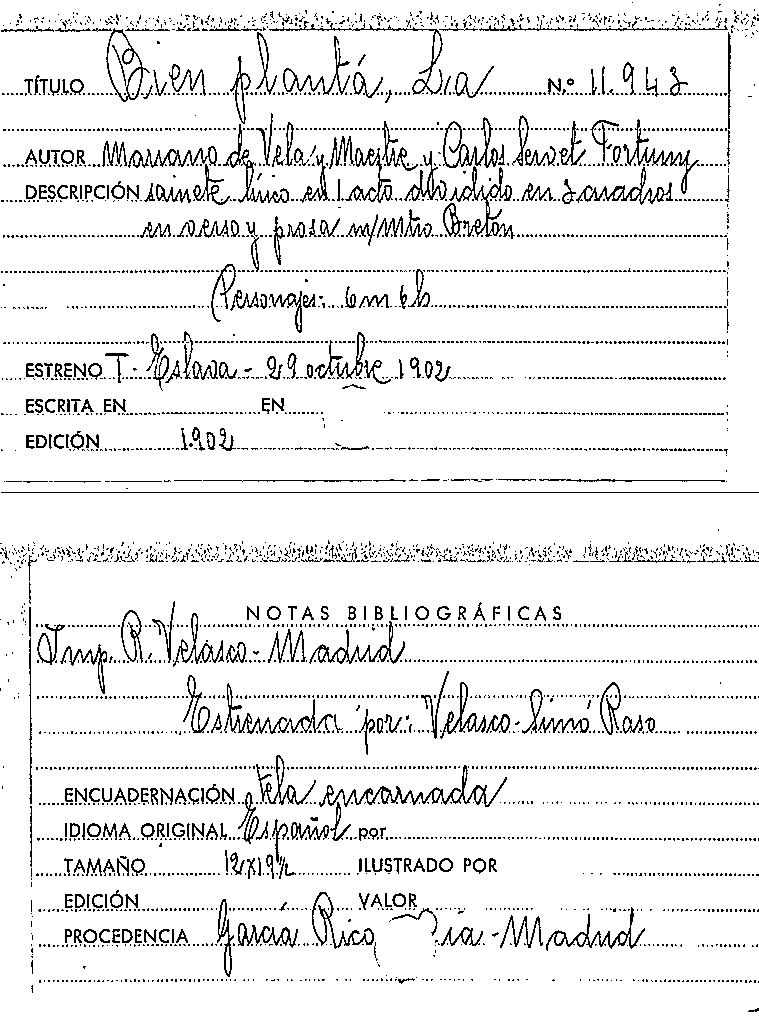 TÍTULO Bien plantá, La N.º 11.943
AUTOR Mariano de Vela y Maestre y Carlos Servet Fortuny
DESCRIPCIÓN sainete lírico en 1 acto dividido en 3 cuadros
en verso y prosa m/Mtro Bretón
Personajes: 6m 6h
ESTRENO T. Eslava - 29 octubre 1902
ESCRITA EN EN
EDICIÓN 1.902
NOTAS BIBLIOGRÁFICAS
Imp. R. Velasco - Madrid
Estrenada por: Velasco - Simó Raso
ENCUADERNACIÓN tela encarnada
IDIOMA ORIGINAL Español por
TAMAÑO 12x19½ ILUSTRADO POR
EDICIÓN VALOR
PROCEDENCIA García Rico - Madrid